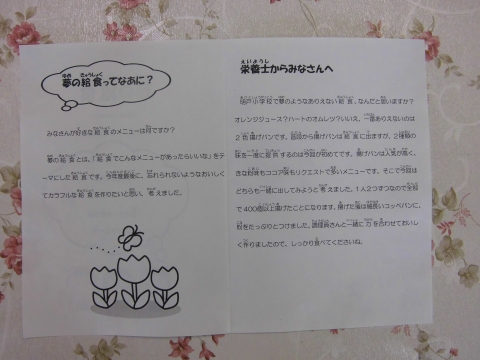 夢の給食ってなあに？
みなさんが好きな給食のメニューは何ですか？
夢の給食とは、「給食でこんなメニューがあったらいいな」をテ
ーマにした給食です。今年度最後に、忘れられないようなおいしく
てカラフルな給食を作りたいと思い、考えました。
栄養士からみなさんへ
小学校で夢のようなありえない給食、なんだと思いますか？
オレンジジュース？ハートのオムレツ？いいえ、一番ありえないのは
2色揚げパンです。普段から揚げパンは給食に出ますが、2種類の
味を一度に提供するのは今回が初めてです。揚げパンは人気が高く、
きな粉味もココア味もリクエストで多いメニューです。そこで今回は
どちらも一緒に出してみようと考えました。1人2つずつなので全部
で400個以上揚げたことになります。揚げた後は細長いコッペパンに、
粉をたっぷりとつけました。調理員さんと一緒に力を合わせておいし
く作りましたので、しっかり食べてくださいね。